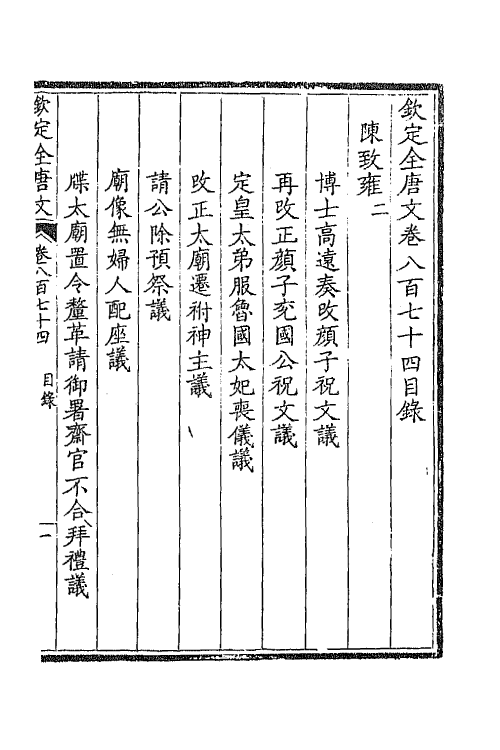 欽定全唐文卷八百七十四目錄
陳致雍二
博士高遠奏改顔子祝文議
再改正顔子兖國公祝文議
定皇太弟服魯國太妃喪儀議
改正太廟遷祔神主議
請公除預祭議
廟像無婦人配座議
牒太廟置令釐革請御署齋官不合拜禮議
欽定全唐文 卷八百七十四 目錄 一